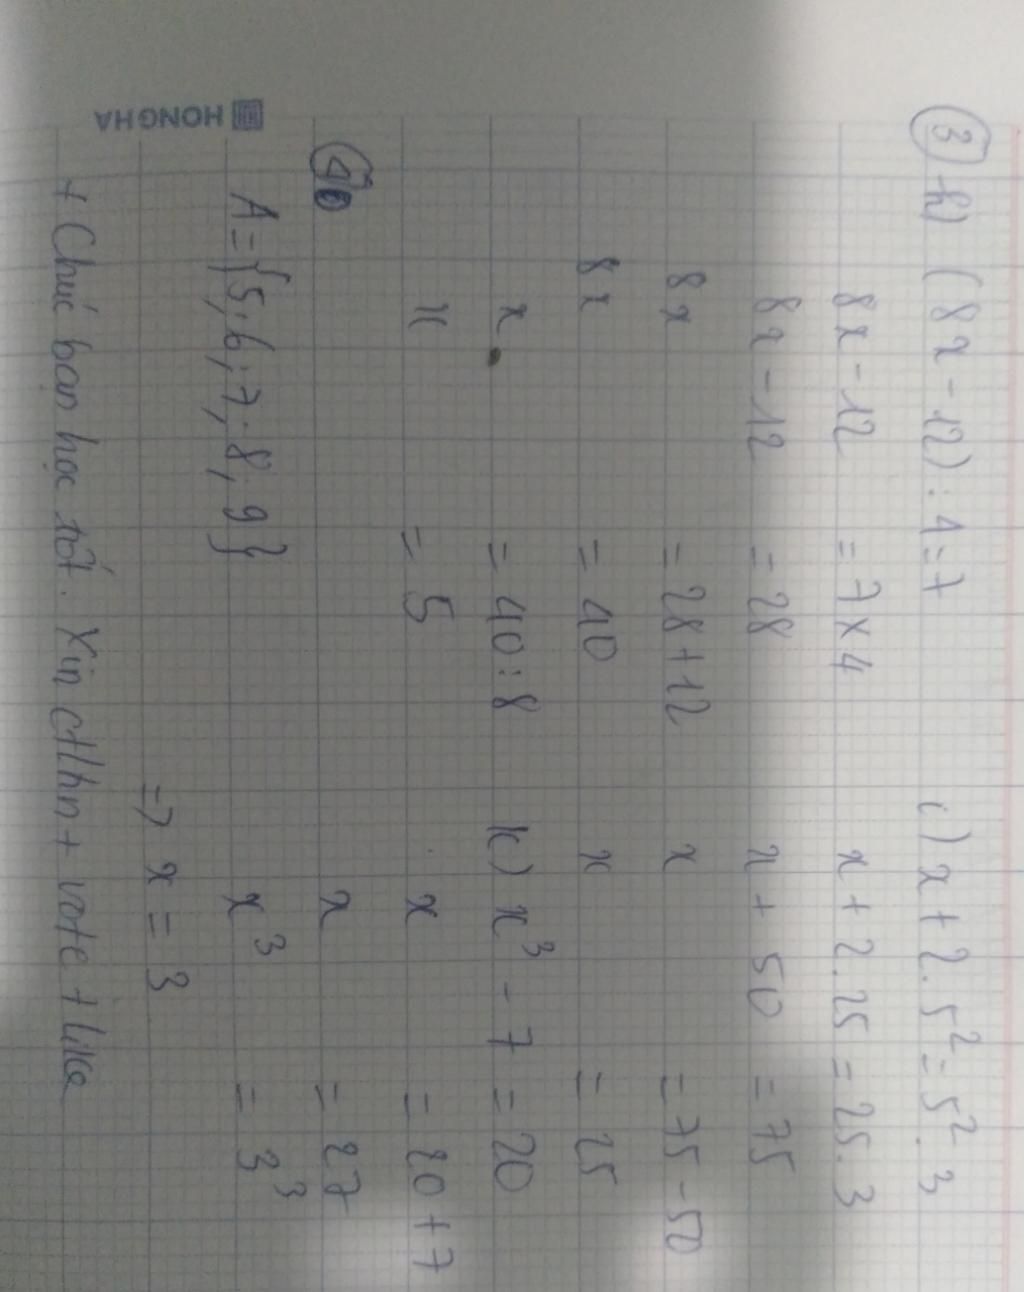 ③ h) (8x - 12) : 4 = 7
8x - 12 = 7 x 4
8x - 12 = 28
8x = 28 + 12
8x = 40
x = 40 : 8
x = 5
④
A = {5; 6; 7; 8; 9}
i) x + 2.5² = 5².3
x + 2.25 = 25.3
x + 50 = 75
x = 75 - 50
x = 25
k) x³ - 7 = 20
x = 20 + 7
x = 27
x³ = 3³
=> x = 3
+ Chúc bạn học tốt. Xin ctlhn + vote + like
HONGHA